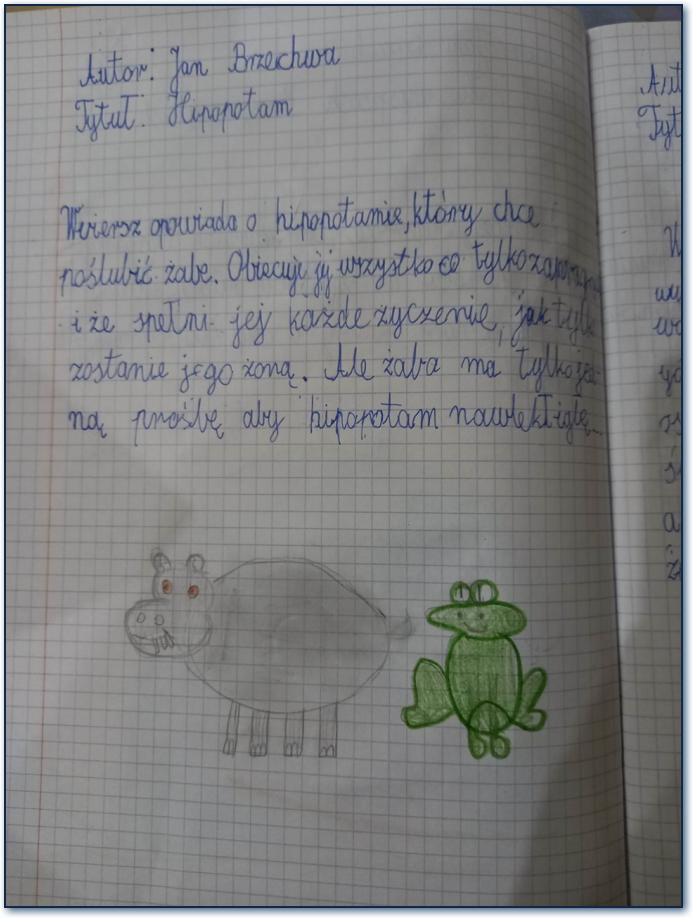 Autor: Jan Brzechwa
Tytuł: Hipopotam
Wiersz opowiada o hipopotamie, który chce
poślubić żabe. Obiecuje jej wszystko co tylko
i że spełni jej każde życzenie, jak tylko
zostanie jego żoną. Ale żaba ma tylko jed-
ną prośbę aby hipopotam nawlekł igłę
Aut
Tyt